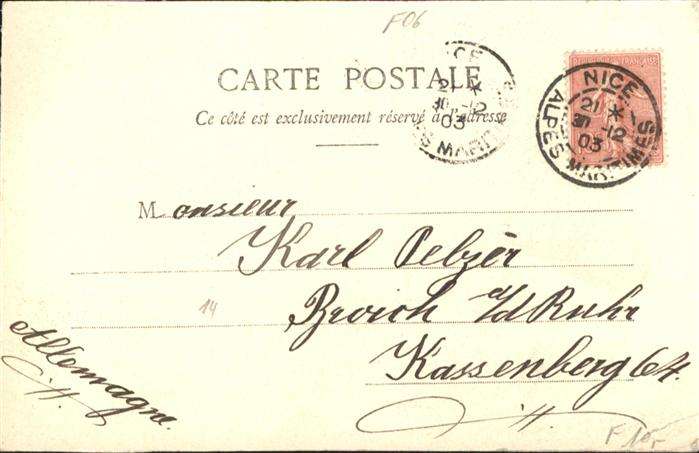 F06
CARTE POSTALE
Ce côté est exclusivement réservé à l'adresse
NICE
21 *
31 -12
03
ALPES MARITIMES
NICE
21 *
31 -12
03
ES MARITIMES
Monsieur
Karl Pelzer
14
Broich a/d Ruhr
Kassenberg 64.
Allemagne.
F 10,-